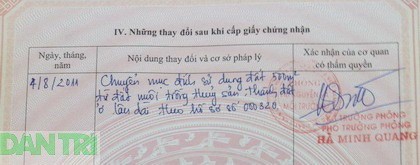 IV. Những thay đổi sau khi cấp giấy chứng nhận
Ngày, tháng, năm
Nội dung thay đổi và cơ sở pháp lý
Xác nhận của cơ quan có thẩm quyền
4/8/2011
Chuyển mục đích sử dụng đất 500m²
từ đất nuôi trồng thủy sản thành đất
ở lâu dài theo hồ sơ số 000340
PHÓ TRƯỞNG PHÒNG
HÀ MINH QUANG
DÂN TRÍ